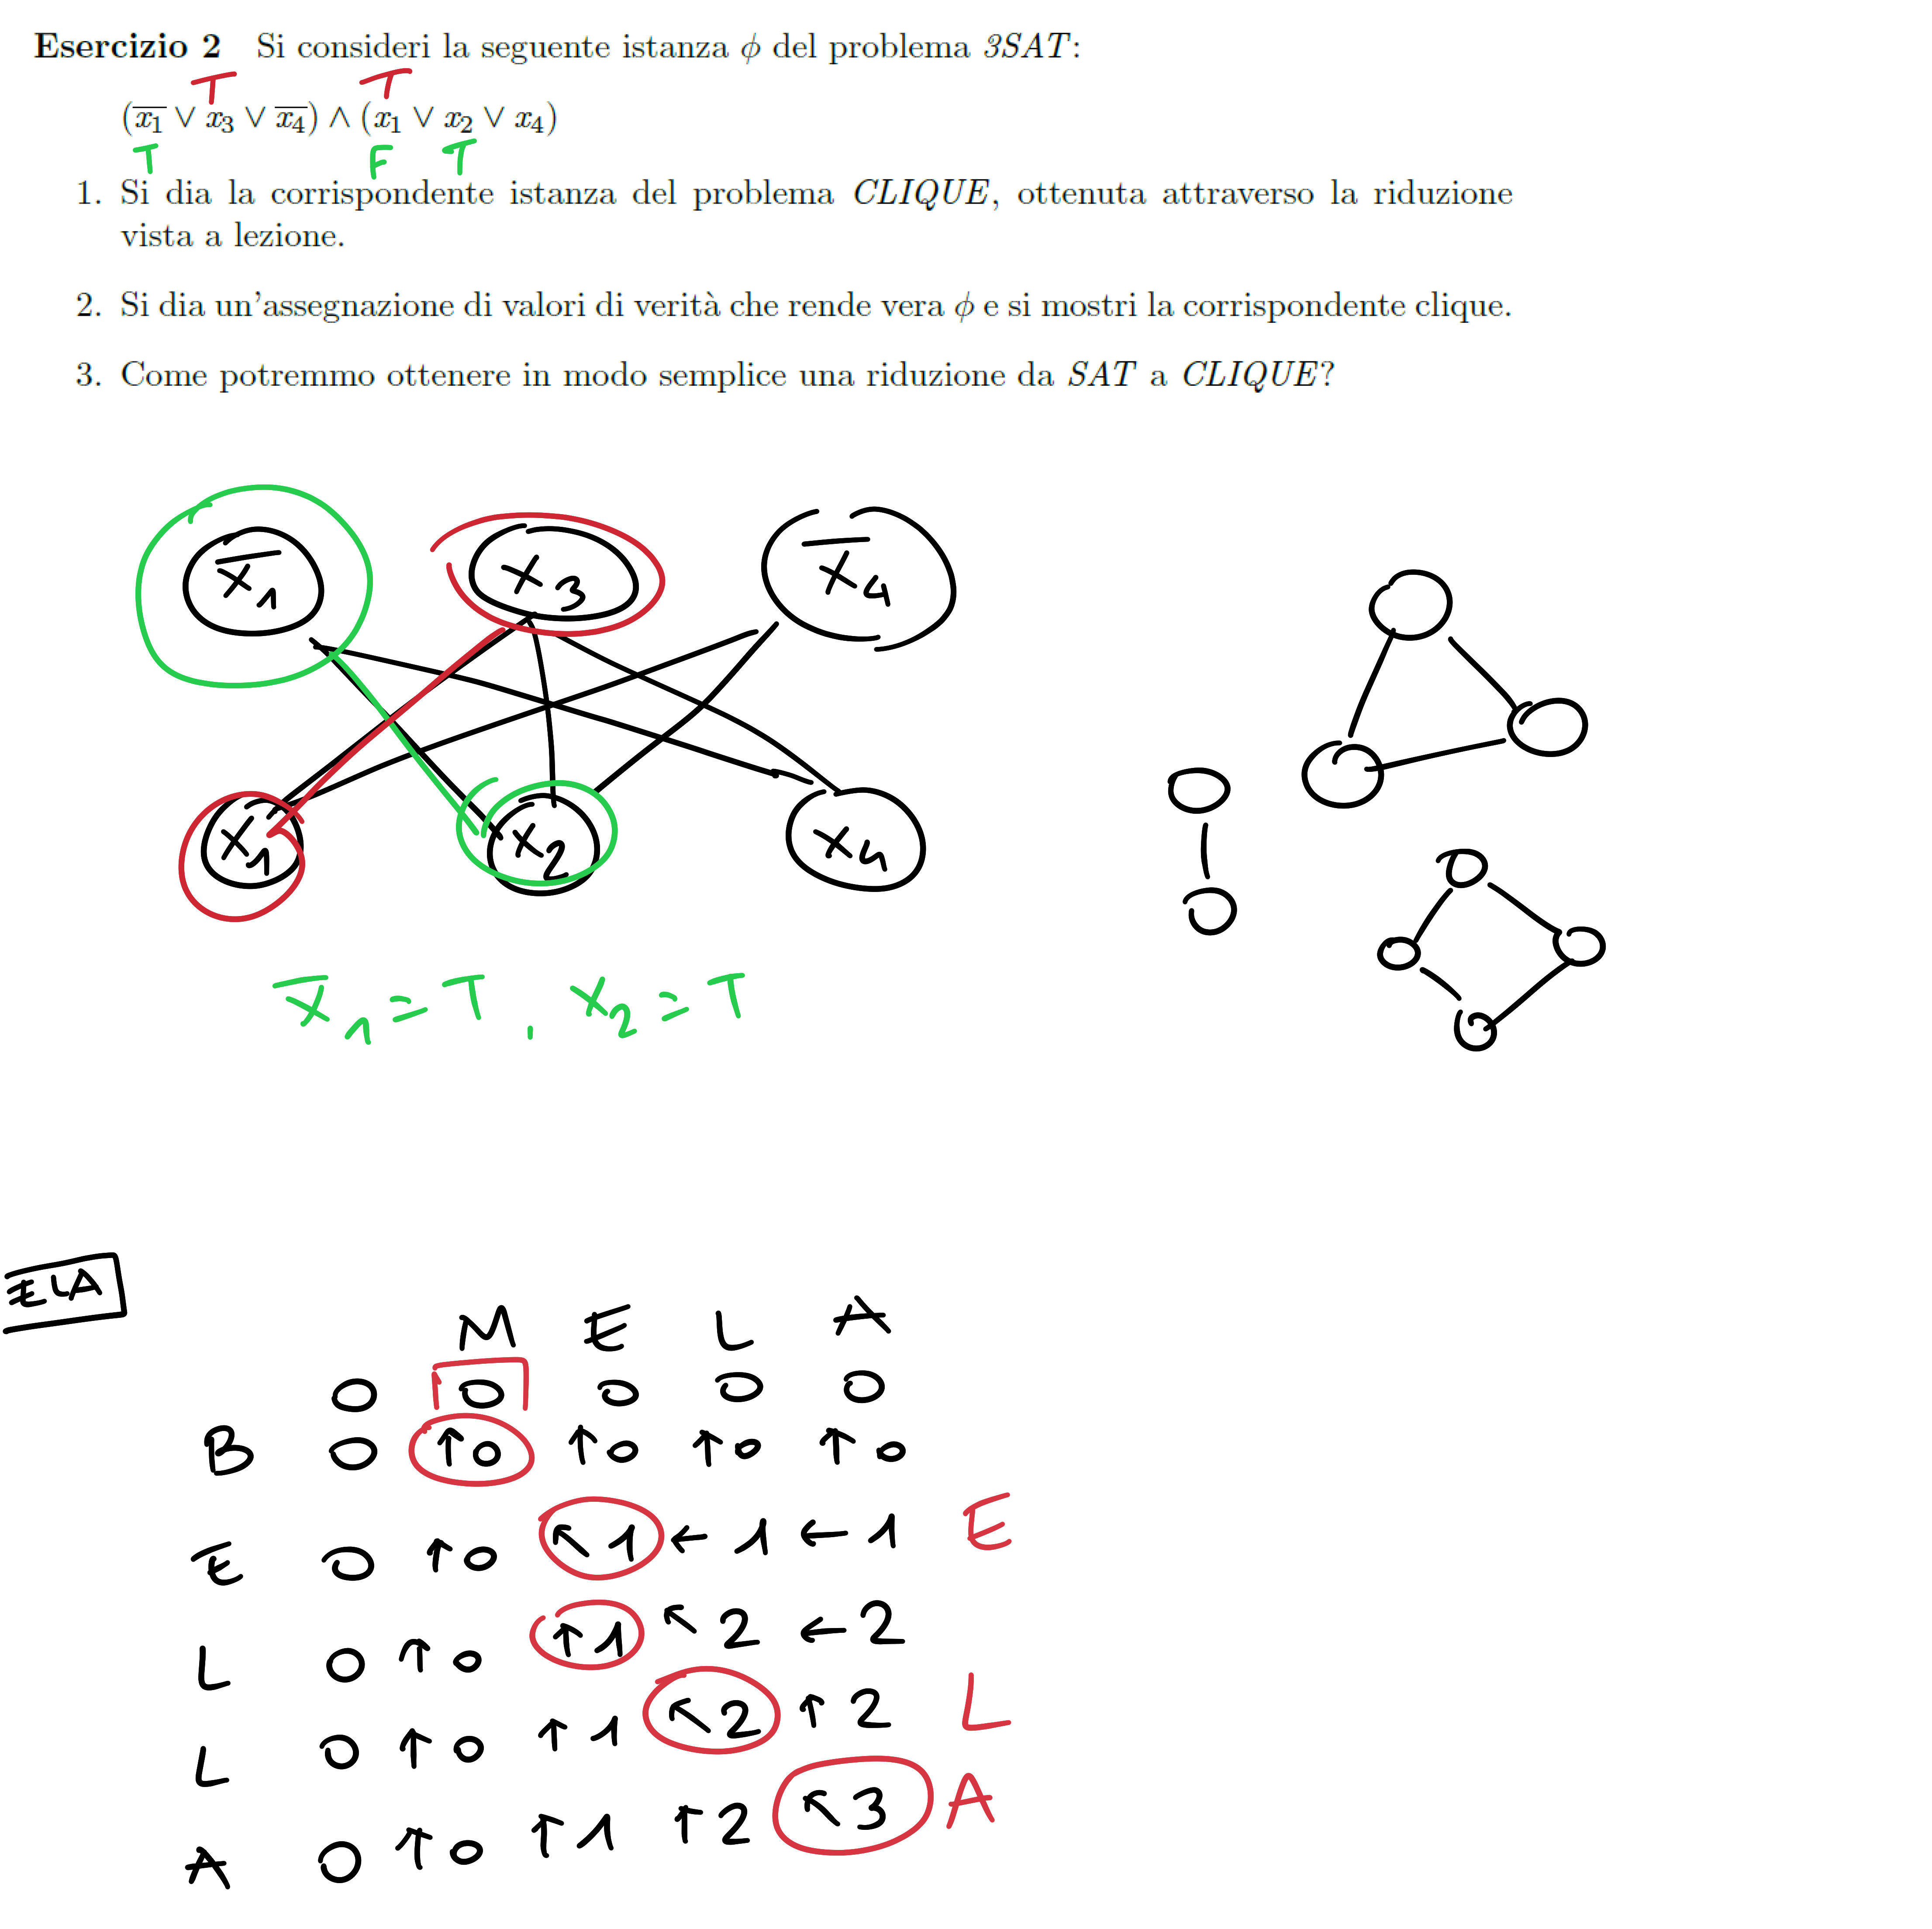 Esercizio 2 Si consideri la seguente istanza ϕ del problema 3SAT:
T T
(x̅₁ ∨ x₃ ∨ x̅₄) ∧ (x₁ ∨ x₂ ∨ x₄)
T F T
1. Si dia la corrispondente istanza del problema CLIQUE, ottenuta attraverso la riduzione
vista a lezione.
2. Si dia un'assegnazione di valori di verità che rende vera ϕ e si mostri la corrispondente clique.
3. Come potremmo ottenere in modo semplice una riduzione da SAT a CLIQUE?
x̅₁ x₃ x̅₄
x₁ x₂ x₄
x̅₁ = T , x₂ = T
ELA
M E L A
0 0 0 0 0
B 0 ↑0 ↑0 ↑0 ↑0
E 0 ↑0 ↖1 ←1 ←1 E
L 0 ↑0 ↑1 ↖2 ←2
L 0 ↑0 ↑1 ↖2 ↑2 L
A 0 ↑0 ↑1 ↑2 ↖3 A